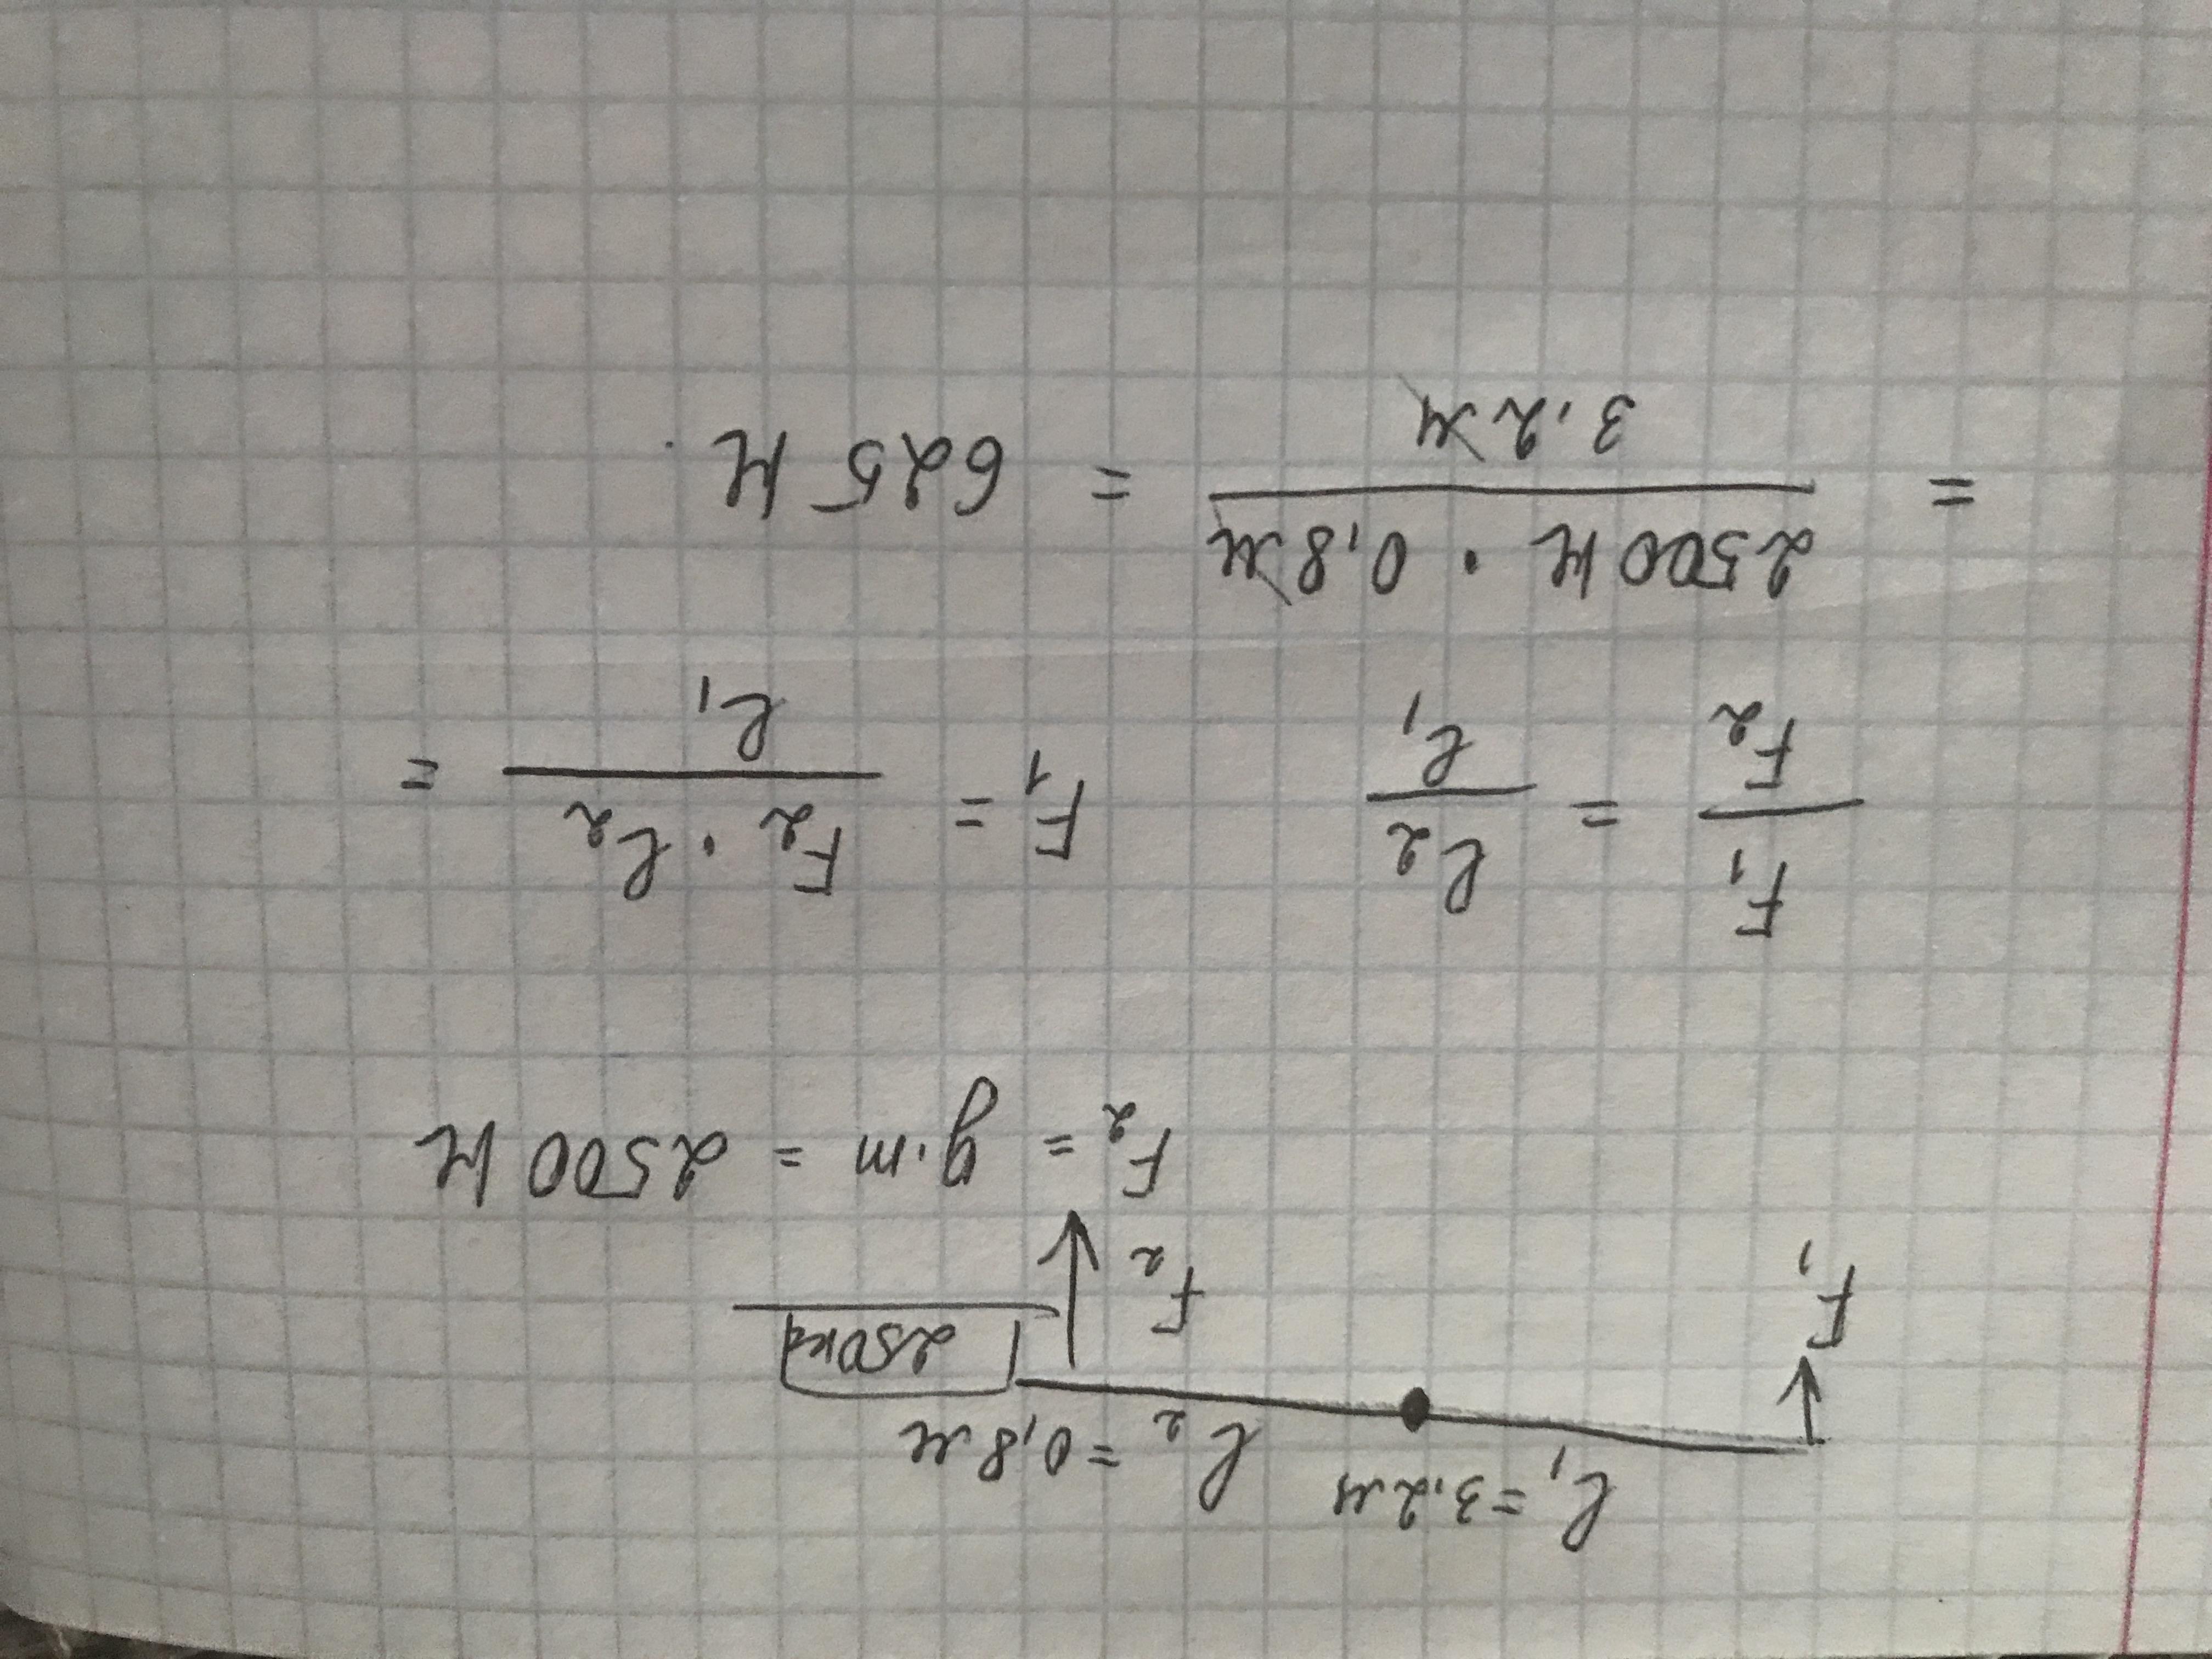 l₁ = 3.2 м l₂ = 0,8 м
250кг
F₁ F₂
F₂ = g·m = 2500 Н
F₁/F₂ = l₂/l₁ F₁ = F₂·l₂/l₁ =
= 2500 Н · 0,8 м/3.2 м = 625 Н.